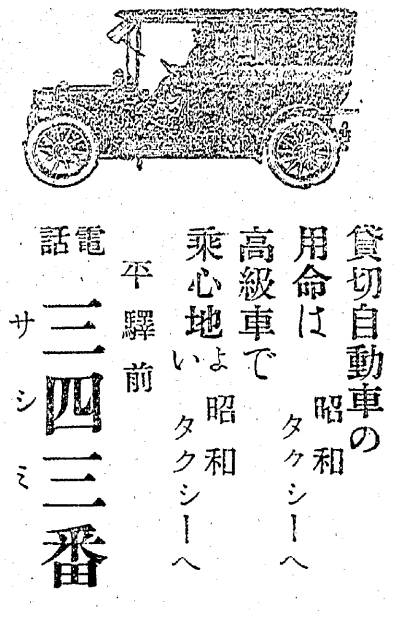 貸切自動車の
用命は
昭和
タクシーへ
高級車で
乘心地よい
昭和
タクシーへ
平驛前
電話
三四三番
サシミ